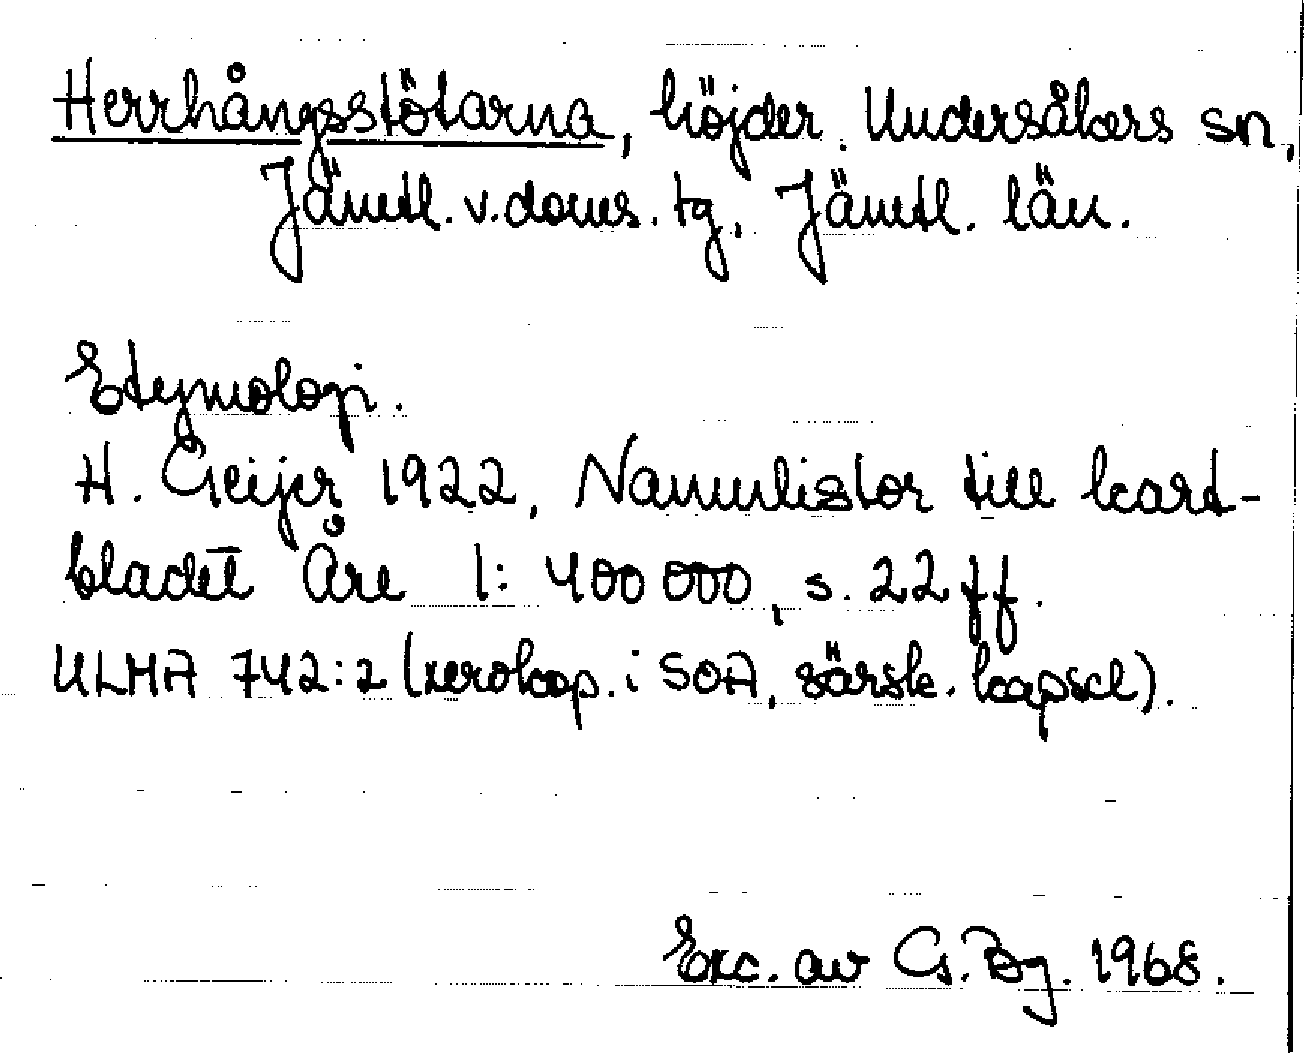 Herrhångsstötarna, höjder. Undersåkers sn,
Jämtl. v. doms. tg, Jämtl. län.
Etymologi.
H. Geijer 1922, Namnlistor till kart-
bladet Åre 1:400 000, s. 22 ff.
ULMA 742:2 (xerokop. i SOA, särsk. kapsel).
Exc. av G. Bg. 1968.